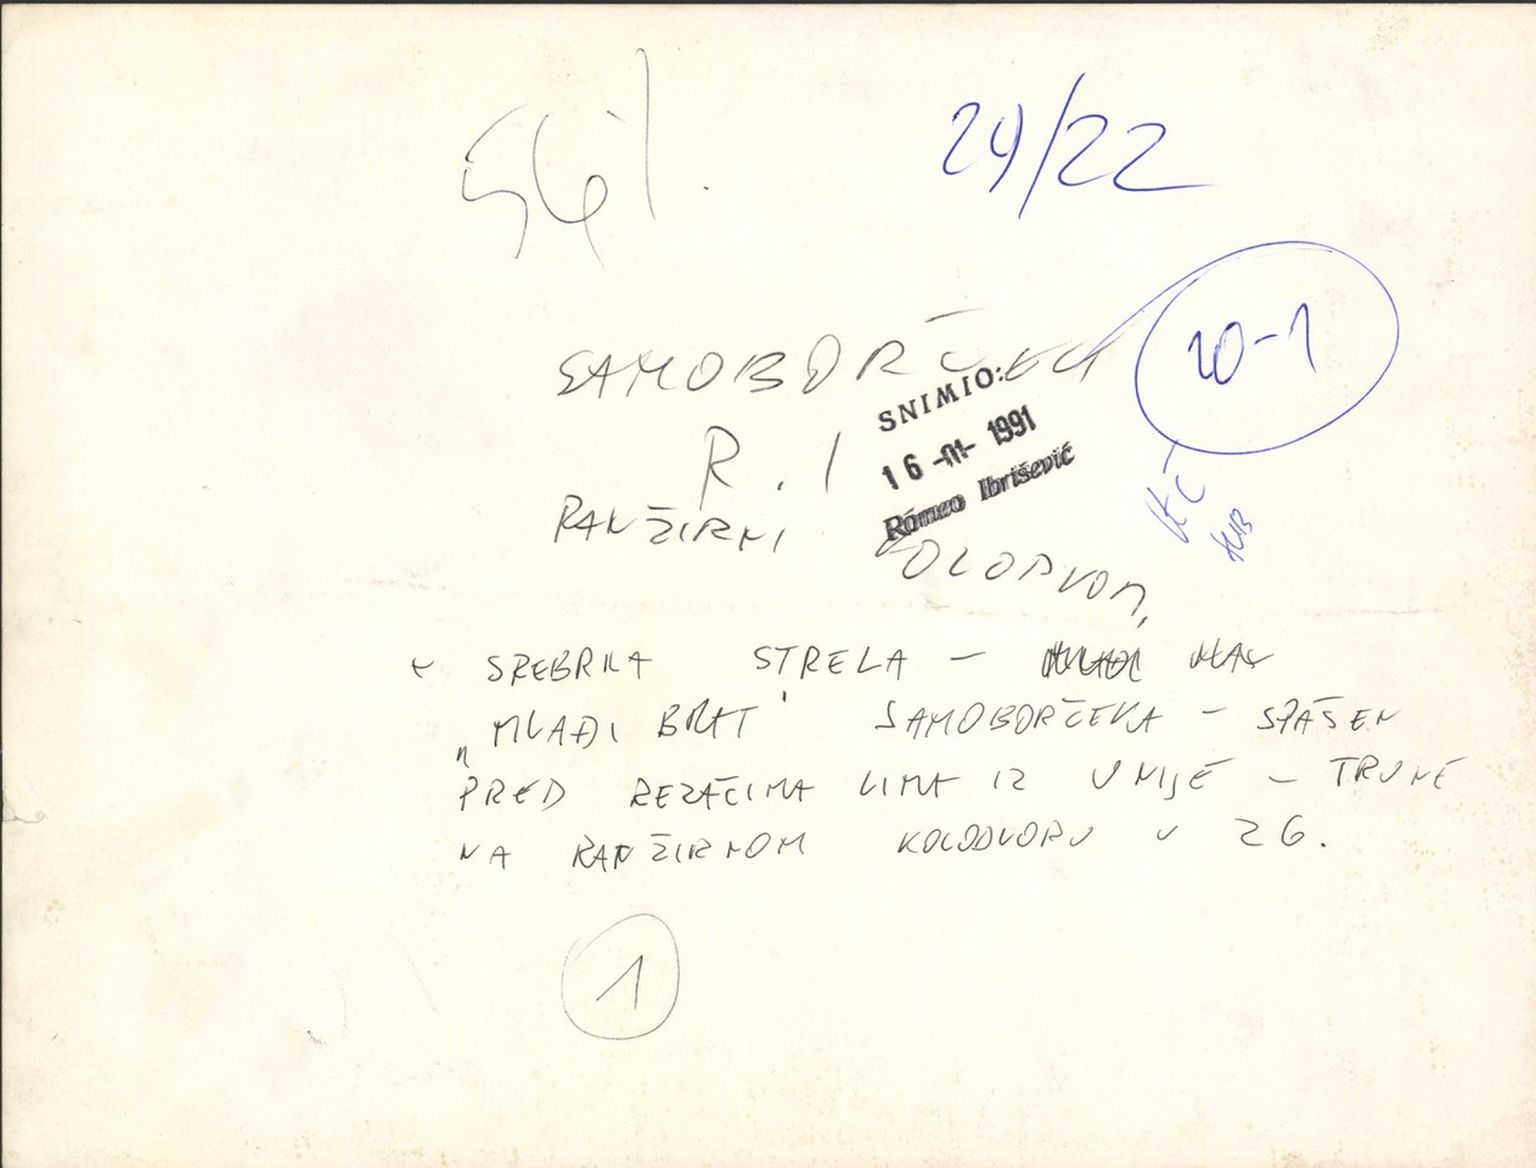 56%.
24/22
20-1
SAMOBORČEK
SNIMIO:
16 -01- 1991
Romeo Ibrišević
VČ
R. 1
RANŽIRNI KOLODVOR,
SREBRNA STRELA -
„MLAĐI BRAT" SAMOBORČEKA - SPAŠEN
PRED REZAČIMA LIMA IZ UNIJE - TRUNE
NA RANŽIRNOM KOLODVORU U ZG.
1